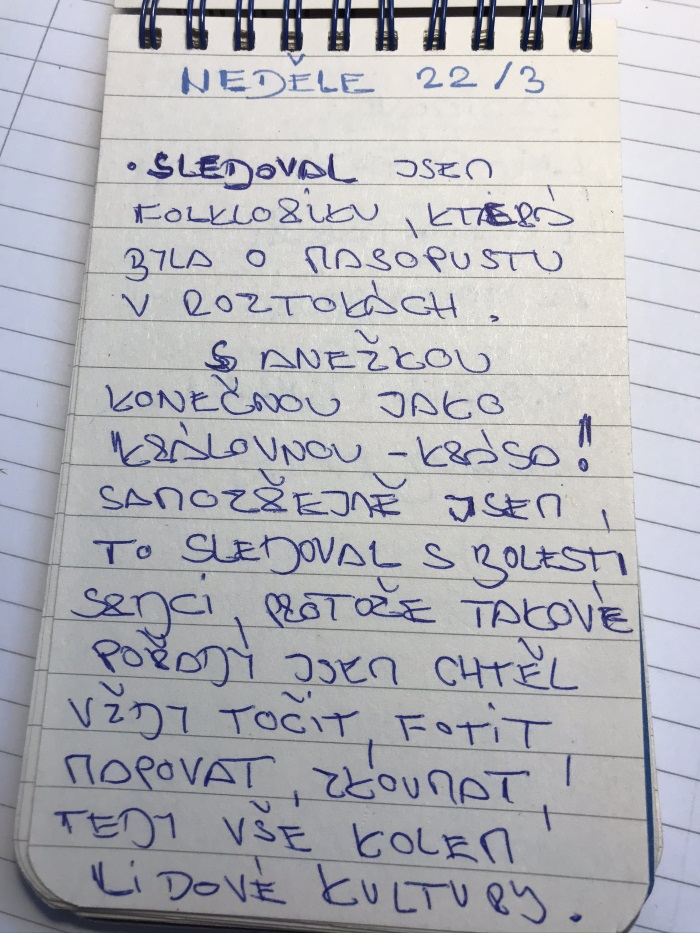 NEDĚLE 22/3
• SLEDOVAL JSEM
FOLKLORIKU, KTERÁ
BYLA O MASOPUSTU
V ROZTOKÁCH.
S ANEŽKOU
KONEČNOU JAKO
KRÁLOVNOU - KRÁSA!
SAMOZŘEJMĚ JSEM
TO SLEDOVAL S BOLESTÍ
SRDCI, PROTOŽE TAKOVÉ
POŘADY JSEM CHTĚL
VŽDY TOČIT, FOTIT
MAPOVAT, ZKOUMAT,
TEDY VŠE KOLEM
LIDOVÉ KULTURY.